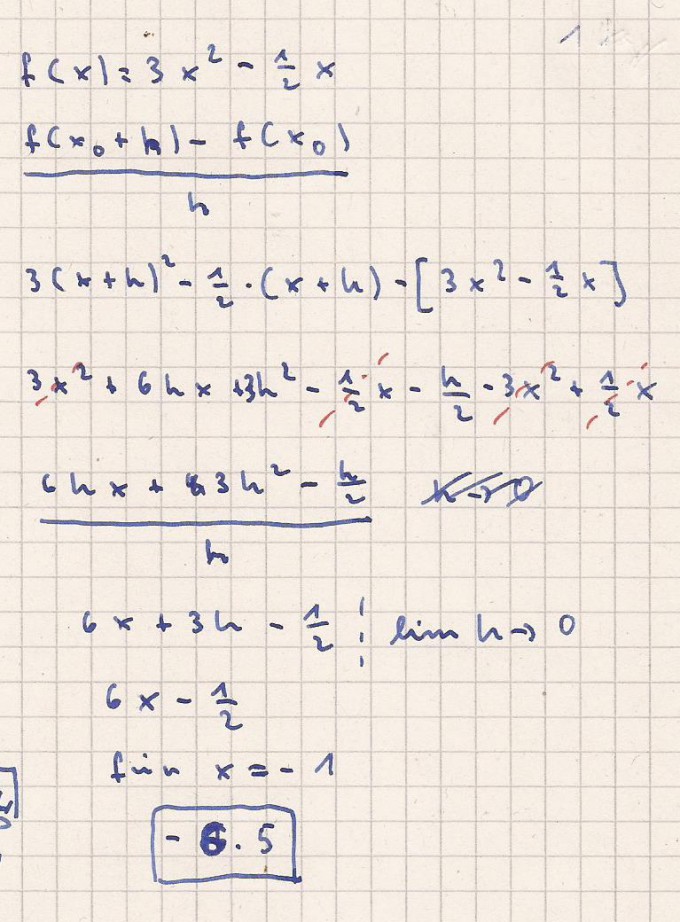 f(x) = 3x² - 1/2 x
f(x₀ + h) - f(x₀)
h
3(x+h)² - 1/2 · (x+h) - [3x² - 1/2 x]
3x² + 6hx + 3h² - 1/2 x - h/2 - 3x² + 1/2 x
6hx + 3h² - h/2
h
6x + 3h - 1/2 ¦ lim h→0
6x - 1/2
für x = -1
-6.5